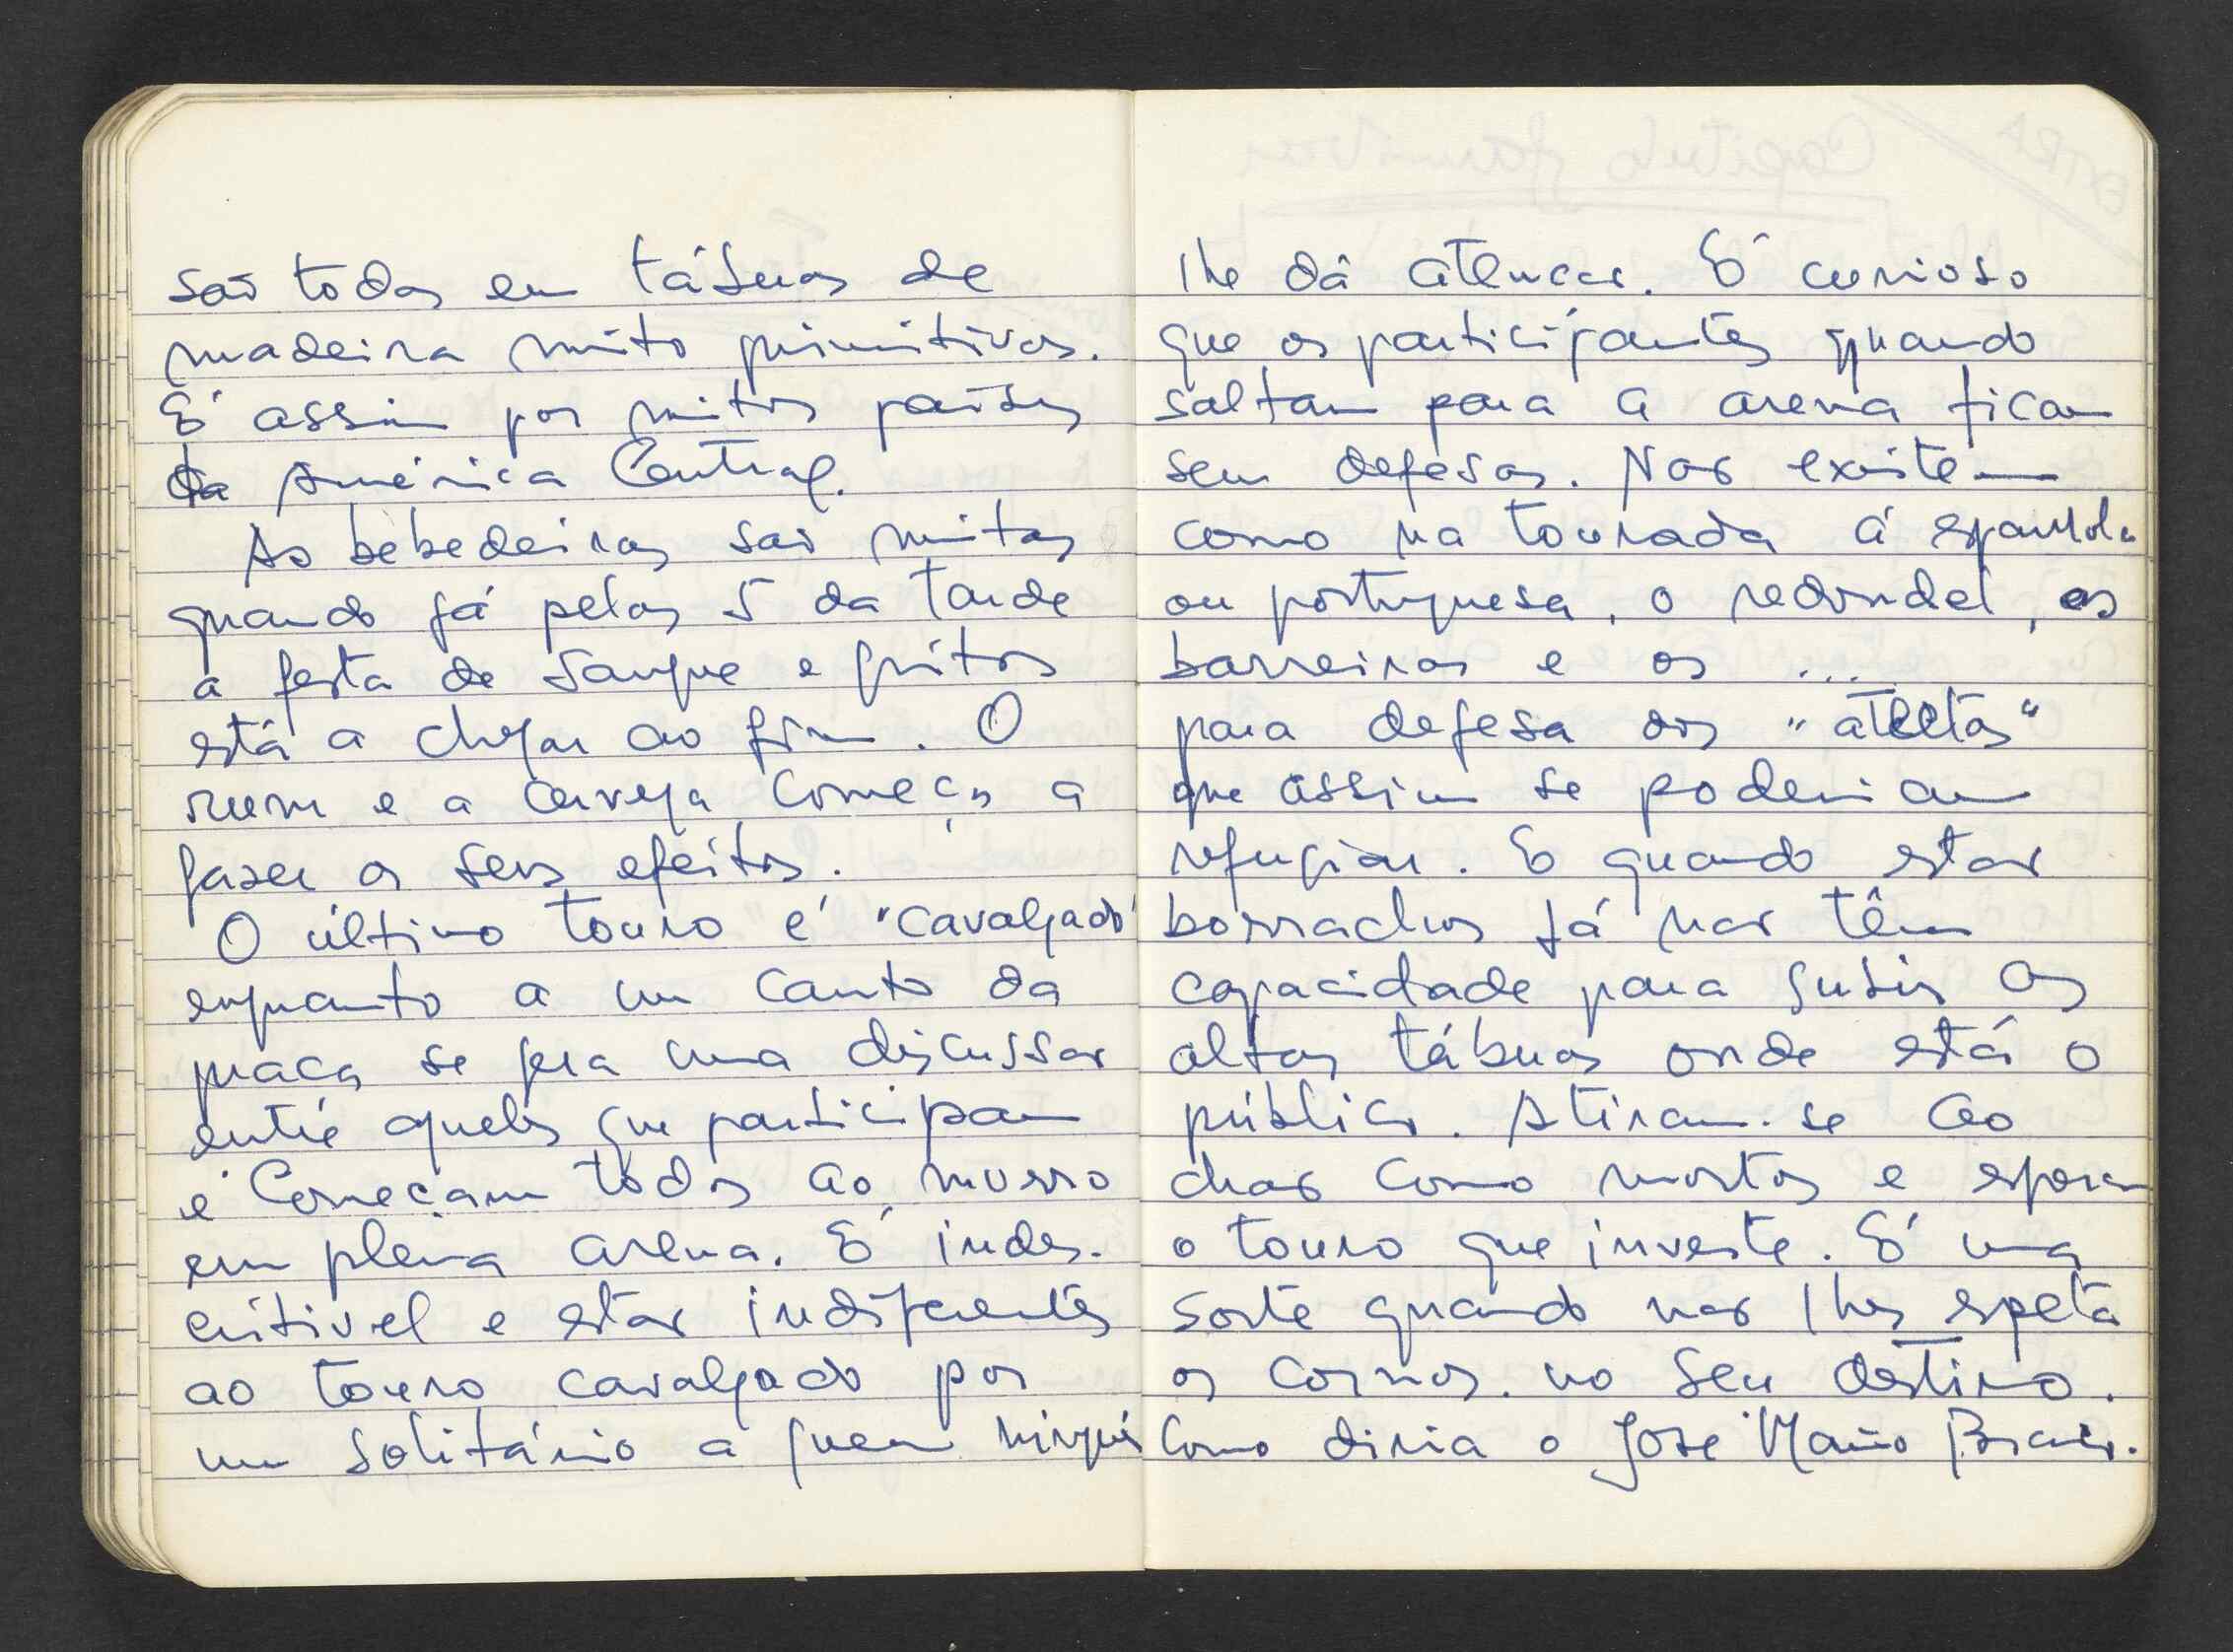 são todas em tábuas de
madeira muito primitivas.
É assim por muitos países
da América Central.
As bebedeiras são muitas
quando já pelas 5 da tarde
a festa de sangue e gritos
está a chegar ao fim. O
rum e a cerveja começa a
fazer os seus efeitos.
O último touro é "cavalgado"
enquanto a um canto da
praça se gera uma discussão
entre aqueles que participam
e começam todos ao murro
em plena arena. É indes-
critivel e estão indiferentes
ao touro cavalgado por
um solitário a quem ninguém
lhe dá atenção. É curioso
que os participantes quando
saltam para a arena ficam
sem defesas. Não existem
como na tourada á espanhola
ou portuguesa, o redondel, as
barreiras e os ...
para defesa dos "atletas"
que assim se poderiam
refugiar. E quando estão
borrachos já não têm
capacidade para subir as
altas tábuas onde está o
público. Atiram-se ao
chão como mortos e esperam
o touro que investe. É uma
sorte quando não lhes espeta
os cornos. no seu destino.
Como diria o José Mário Branco.